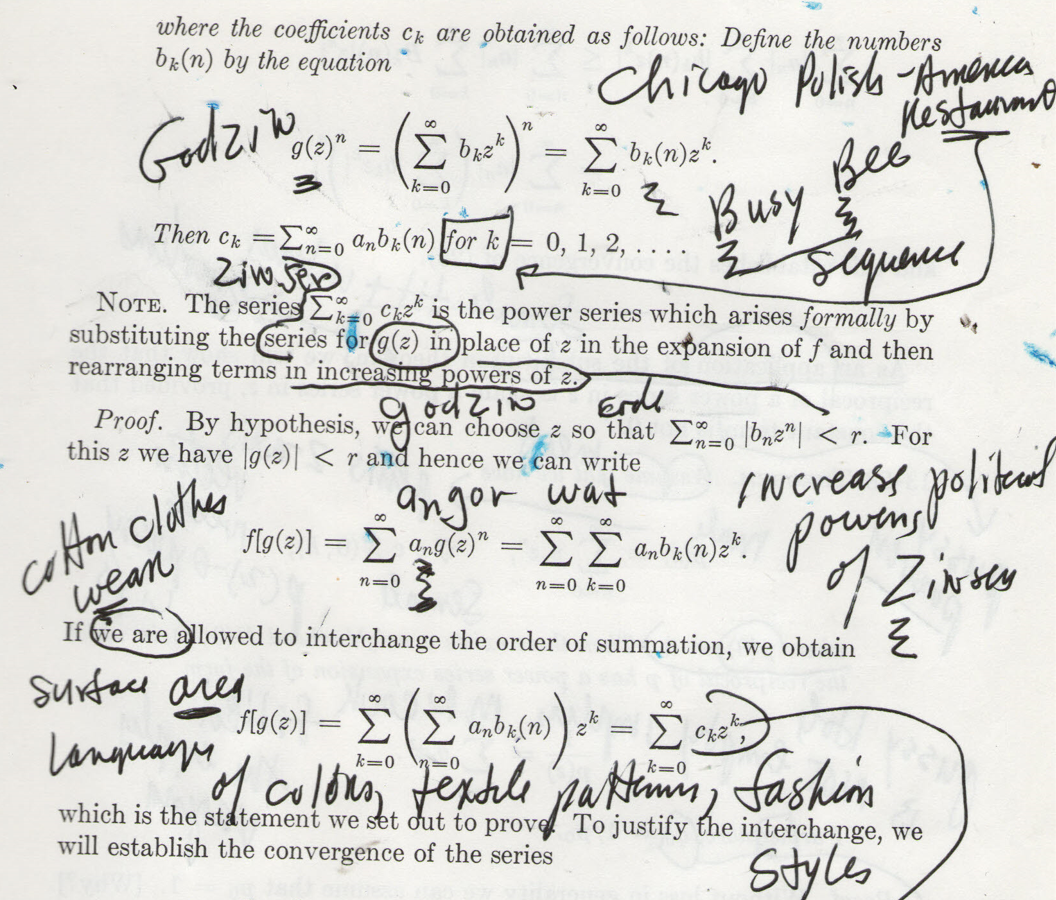 where the coefficients c_k are obtained as follows: Define the numbers
b_k(n) by the equation
Chicago Polish-America
Restaurant
Godziw
g(z)^n = (∑_{k=0}^{∞} b_k z^k)^n = ∑_{k=0}^{∞} b_k(n)z^k.
Busy Bee
Then c_k = ∑_{n=0}^{∞} a_n b_k(n) for k = 0, 1, 2, . . . .
sequence
NOTE. The series ∑_{k=0}^{∞} c_k z^k is the power series which arises formally by
substituting the series for g(z) in place of z in the expansion of f and then
rearranging terms in increasing powers of z.
godziw
Proof. By hypothesis, we can choose z so that ∑_{n=0}^{∞} |b_n z^n| < r. For
this z we have |g(z)| < r and hence we can write
angor wat
increase political
powers
of Zinsey
cotton clothes
wear
f[g(z)] = ∑_{n=0}^{∞} a_n g(z)^n = ∑_{n=0}^{∞} ∑_{k=0}^{∞} a_n b_k(n)z^k.
If we are allowed to interchange the order of summation, we obtain
surface area
f[g(z)] = ∑_{k=0}^{∞} (∑_{n=0}^{∞} a_n b_k(n)) z^k = ∑_{k=0}^{∞} c_k z^k,
languages
of colors, textile patterns, fashion
which is the statement we set out to prove. To justify the interchange, we
will establish the convergence of the series
styles